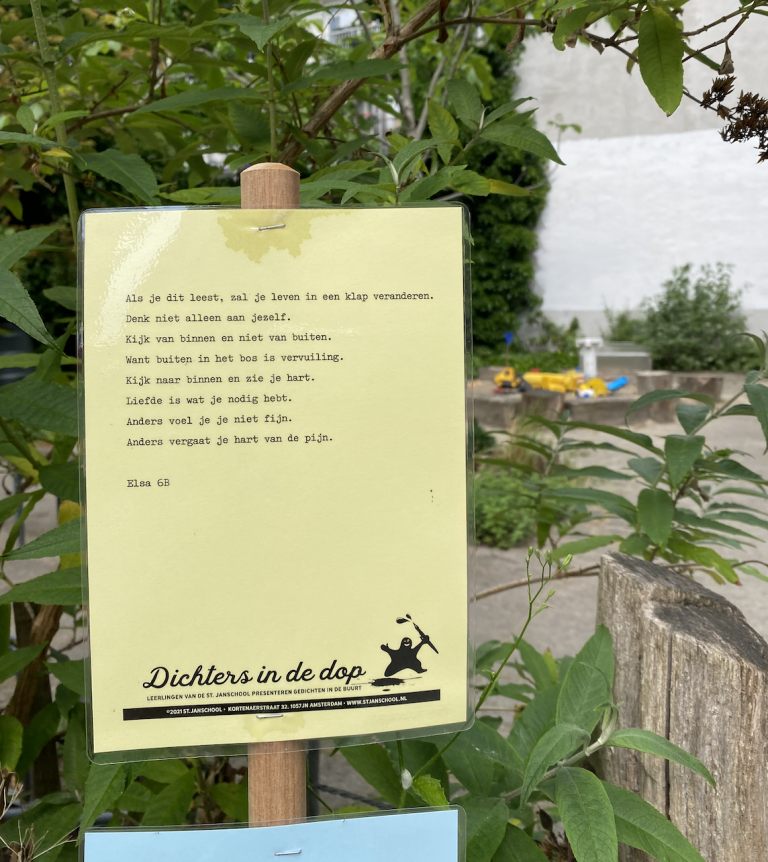 Als je dit leest, zal je leven in een klap veranderen.
Denk niet alleen aan jezelf.
Kijk van binnen en niet van buiten.
Want buiten in het bos is vervuiling.
Kijk naar binnen en zie je hart.
Liefde is wat je nodig hebt.
Anders voel je je niet fijn.
Anders vergaat je hart van de pijn.
Elsa 6B
Dichters in de dop
LEERLINGEN VAN DE ST. JANSCHOOL PRESENTEREN GEDICHTEN IN DE BUURT
©2021 ST.JANSCHOOL • KORTENAERSTRAAT 32, 1057JN AMSTERDAM • WWW.STJANSCHOOL.NL